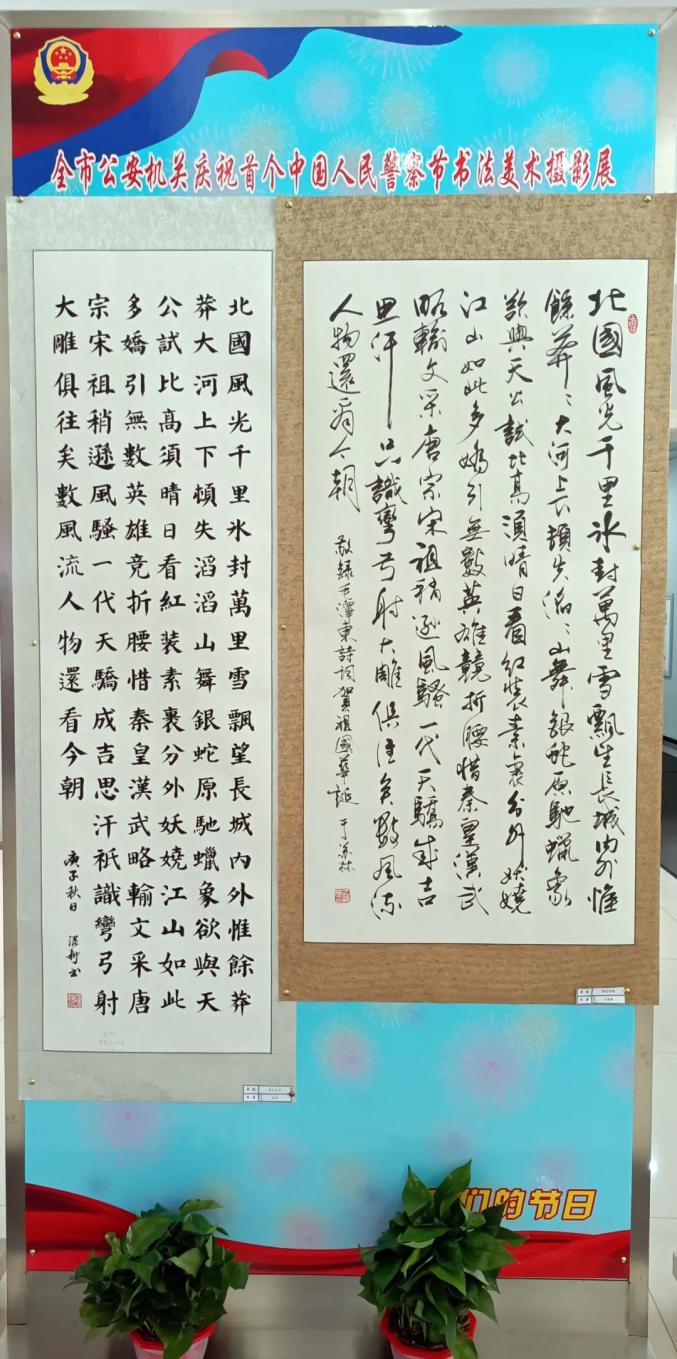 全市公安机关庆祝首个中国人民警察节书法美术摄影展
北國風光千里冰封萬里雪飄望長城内外惟
餘莽〻大河上下頓失滔〻山舞銀蛇原馳蠟象
欲與天公試比高須晴日看紅裝素裹分外妖嬈
江山如此多嬌引無數英雄競折腰惜秦皇漢武
略輸文采唐宗宋祖稍遜風騷一代天驕成吉
思汗只識彎弓射大雕俱往矣數風流
人物還看今朝
敬錄毛澤東詩詞賀祖國華誕
北國風光千里氷封萬里雪飄望長城內外惟餘莽
莽大河上下頓失滔滔山舞銀蛇原馳蠟象欲與天
公試比高須晴日看紅裝素裹分外妖嬈江山如此
多嬌引無數英雄竞折腰惜秦皇漢武略輸文采唐
宗宋祖稍遜風騷一代天驕成吉思汗祇識彎弓射
大雕俱往矣數風流人物還看今朝
庚子秋日
们的节日